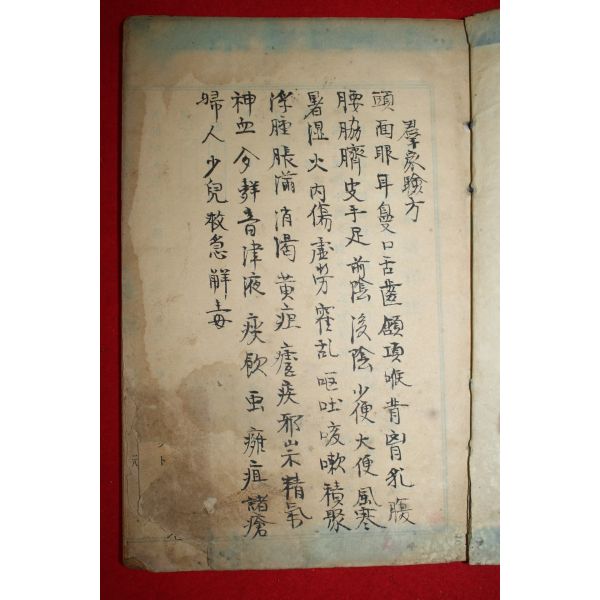 羣衆驗方
頭面眼耳鼻口舌齒頸項喉背胷乳腹
腰脇臍皮手足前陰後陰少便大便風寒
暑湿火內傷虛勞霍乱嘔吐咳嗽積聚
浮腫脹滿消渴黃疸瘧疾邪祟精氣
神血多鮮音津液痰飮虫癰疽諸瘡
婦人少兒救急解毒